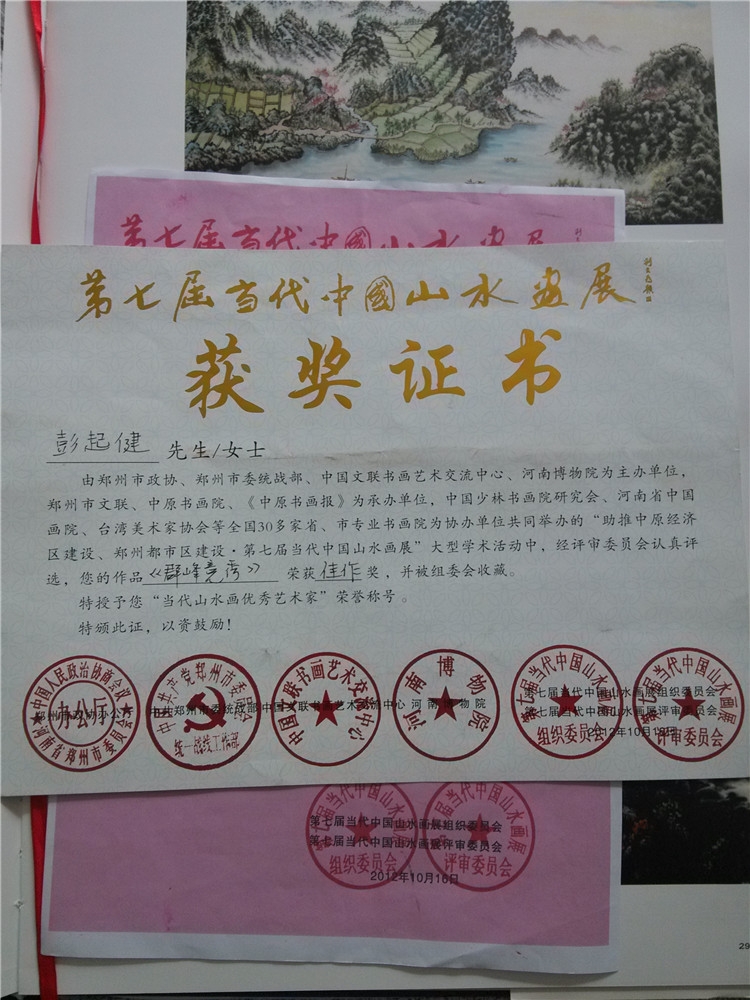 第七届当代中國山水画展
第七届当代中國山水画展
获奖证书
彭起健 先生/女士
由郑州市政协、郑州市委统战部、中国文联书画艺术交流中心、河南博物院为主办单位，
郑州市文联、中原书画院、《中原书画报》为承办单位，中国少林书画院研究会、河南省中国
画院、台湾美术家协会等全国30多家省、市专业书画院为协办单位共同举办的“助推中原经济
区建设、郑州都市区建设·第七届当代中国山水画展”大型学术活动中，经评审委员会认真评
选，您的作品《群峰竞秀》荣获佳作奖，并被组委会收藏。
特授予您“当代山水画优秀艺术家”荣誉称号。
特颁此证，以资鼓励！
中国人民政治协商会议河南省郑州市委员会
办公厅
郑州市政协办公厅
中国共产党郑州市委员会
统一战线工作部
中共郑州市委统战部
中国文联书画艺术交流中心
中国文联书画艺术交流中心
河南博物院
河南博物院
第七届当代中国山水画展
组织委员会
第七届当代中国山水画展
评审委员会
第七届当代中国山水画展组织委员会
第七届当代中国山水画展评审委员会
2012年10月16日
第七届当代中国山水画展
组织委员会
第七届当代中国山水画展
评审委员会
第七届当代中国山水画展组织委员会
第七届当代中国山水画展评审委员会
2012年10月16日
29